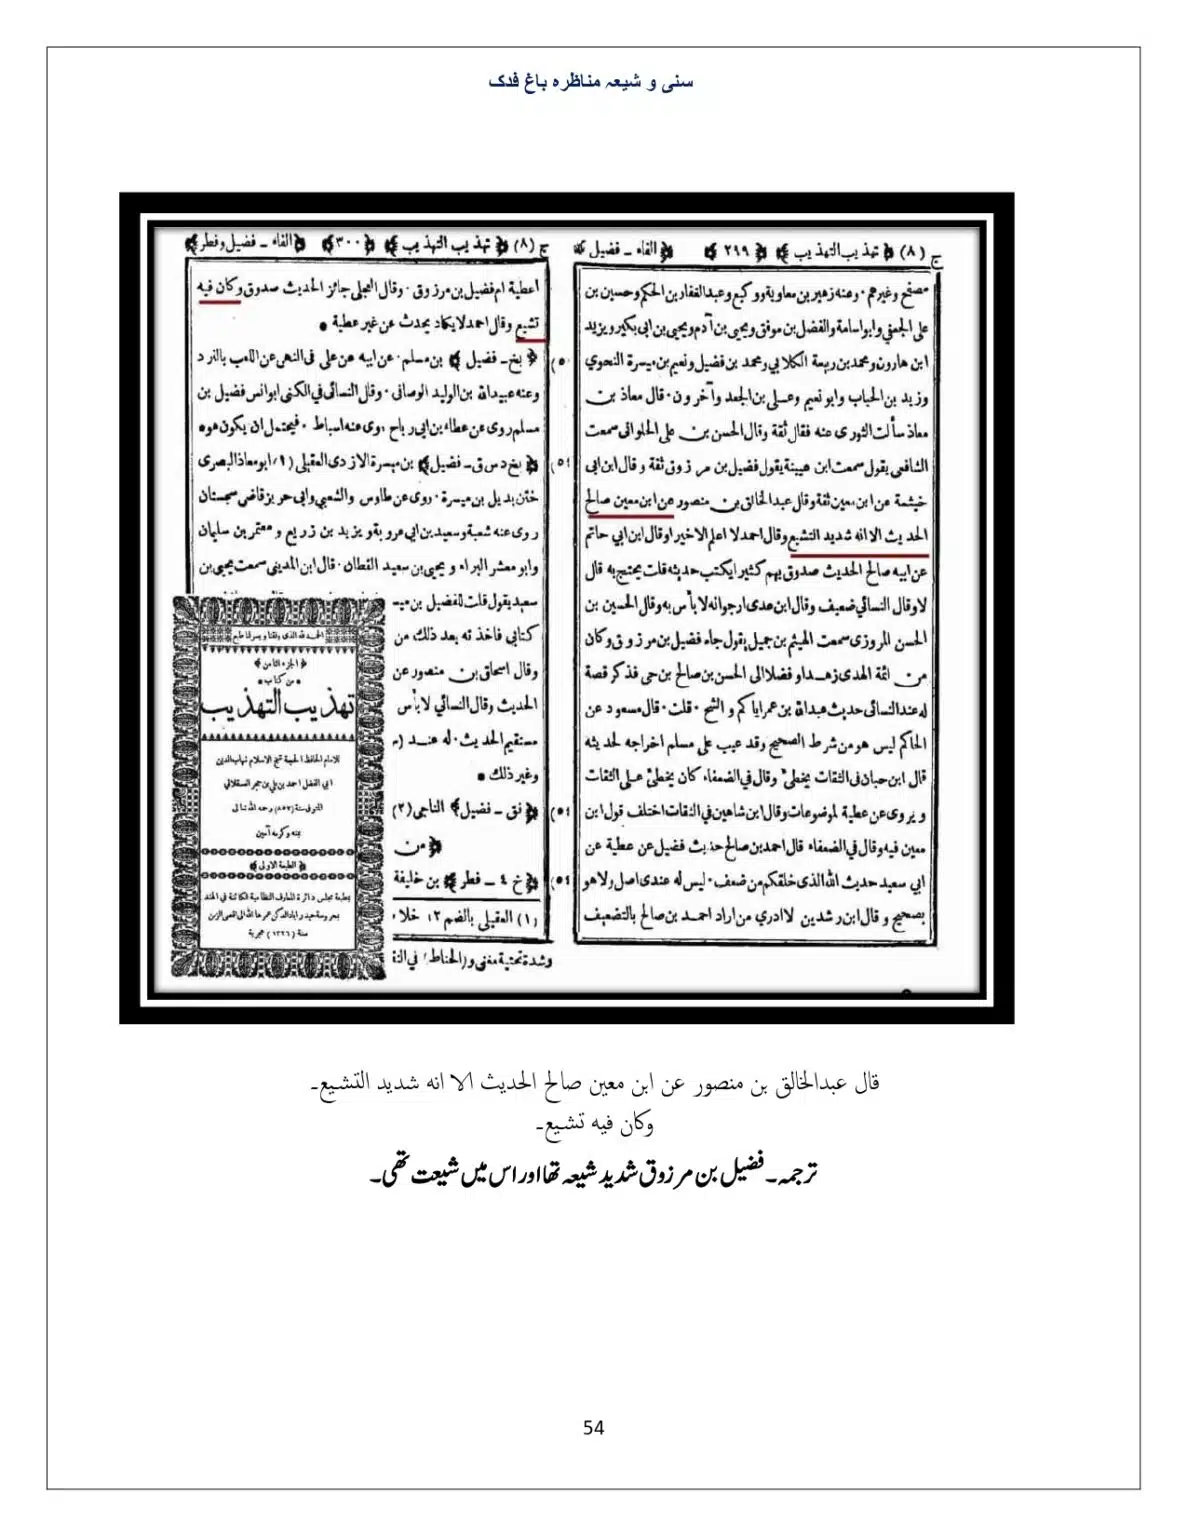 سنی و شیعہ مناظرہ باغ فدک
ج (٨) ﴿ تهذيب التهذيب ﴾ ﴿ ٢٩٩ ﴾ ﴿ الفاء ـ فضيل ﴾
مصفح وغيرهم ٠ وعنه زهير بن معاوية ووكيع وعبد الغفار بن الحكم وحسين بن
على الجعفي وابو اسامة والفضل بن موفق ويحيى بن آدم ويحيى بن ابى بكير ويزيد
ابن هارون ومحمد بن ربيعة الكلابي ومحمد بن فضيل ونعيم بن ميسرة النحوي
وزيد بن الحباب وابو نعيم وعلى بن الجعد وآخرون ٠ قال معاذ بن
معاذ سألت الثورى عنه فقال ثقة وقال الحسن بن على الحلوانى سمعت
الشافعى يقول سمعت ابن عيينة يقول فضيل بن مرزوق ثقة وقال ابن ابى
خيثمة عن ابن معين ثقة وقال عبد الخالق بن منصور عن ابن معين صالح
الحديث الا انه شديد التشيع وقال احمد لا اعلم الا خيرا وقال ابن ابي حاتم
عن ابيه صالح الحديث صدوق يهم كثيرا يكتب حديثه قلت يحتج به قال
لا وقال النسائى ضعيف وقال ابن عدى ارجو انه لا بأس به وقال الحسين بن
الحسن المروزى سمعت الهيثم بن جميل يقول جاء فضيل بن مرزوق وكان
من ائمة الهدى زهدا وفضلا الى الحسن بن صالح بن حى فذكر قصة
له عند النسائى حديث عبد الله بن عمر اياكم والشح ٠ قلت ٠ قال مسعود عن
الحاكم ليس هو من شرط الصحيح وقد عيب على مسلم اخراجه لحديثه
قال ابن حبان فى الثقات يخطئ وقال فى الضعفاء كان يخطئ على الثقات
ويروى عن عطية الموضوعات وقال ابن شاهين في الثقات اختلف قول ابن
معين فيه وقال فى الضعفاء قال احمد بن صالح حديث فضيل عن عطية عن
ابي سعيد حديث الله الذى خلقكم من ضعف ٠ ليس له عندى اصل ولا هو
بصحيح وقال ابن رشدين لا ادري من اراد احمد بن صالح بالتضعيف
ج (٨) ﴿ تهذيب التهذيب ﴾ ﴿ ٣٠٠ ﴾ ﴿ الفاء ـ فضيل وفطر ﴾
اعطية ام فضيل بن مرزوق ٠ وقال العجلى جائز الحديث صدوق وكان فيه
تشيع وقال احمد لا يكاد يحدث عن غير عطية •
﴿ بخ ـ فضيل ﴾ بن مسلم ٠ عن ابيه عن على فى النهى عن اللعب بالنرد
وعنه عبيد الله بن الوليد الوصافى ٠ وقال النسائى في الكنى ابو انس فضيل بن
مسلم روى عن عطاء بن ابى رباح روى عنه اسباط ٠ فيحتمل ان يكون هو •
﴿ بخ د س ق ـ فضيل ﴾ بن ميسرة الازدى العقيلى (١) ابو معاذ البصرى
ختن بديل بن ميسرة ٠ روى عن طاوس والشعبي وابى حريز قاضى سجستان
روى عنه شعبة وسعيد بن ابى عروبة ويزيد بن زريع ومعتمر بن سليمان
وابو معشر البراء ويحيى بن سعيد القطان ٠ قال ابن المدينى سمعت يحيى بن
سعيد يقول قلت للفضيل بن ميسـ
كتابى فاخذته بعد ذلك من
وقال اسحاق بن منصور عن
الحديث وقال النسائي لا بأس
مستقيم الحديث ٠ له عند (
وغير ذلك •
﴿ فق ـ فضيل ﴾ الناجى (٢)
﴿ من
﴿ خ ٤ ـ فطر ﴾ بن خليفة
(١) العقيلى بالضم ١٢ خلا
وشدة تحتية مغنى و (الحناط) فى
الحمد لله الذى وفقنا ويسر لنا طبع
﴿ الجزء الثامن ﴾
• من كتاب •
تهذيب التهذيب
للامام الحافظ الحجة شيخ الاسلام شهاب الدين
ابي الفضل احمد بن علي بن حجر العسقلاني
المتوفى سنة (٨٥٢) رحمه الله تعالى
بمنه وكرمه آمين
﴿ الطبعة الاولى ﴾
بمطبعة مجلس دائرة المعارف النظامية الكائنة في الهند
بمحروسة حيدرآباد الدكن عمرها الله الى اقصى الزمن
سنة (١٣٢٦) هجرية
قال عبدالخالق بن منصور عن ابن معین صالح الحدیث الا انه شدید التشیع۔
وکان فیه تشیع۔
ترجمہ۔ فضیل بن مرزوق شدید شیعہ تھا اور اس میں شیعت تھی۔
54